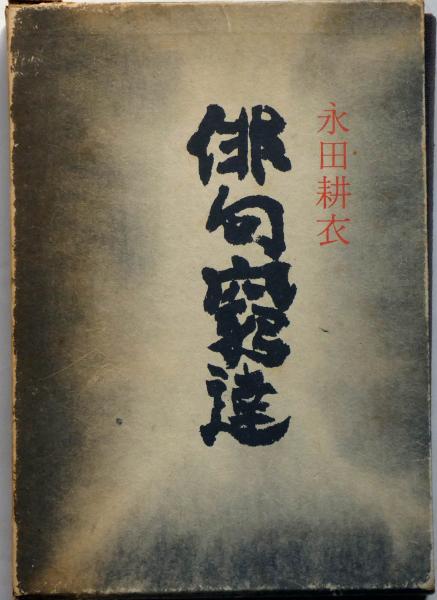 永田耕衣
俳句窮達